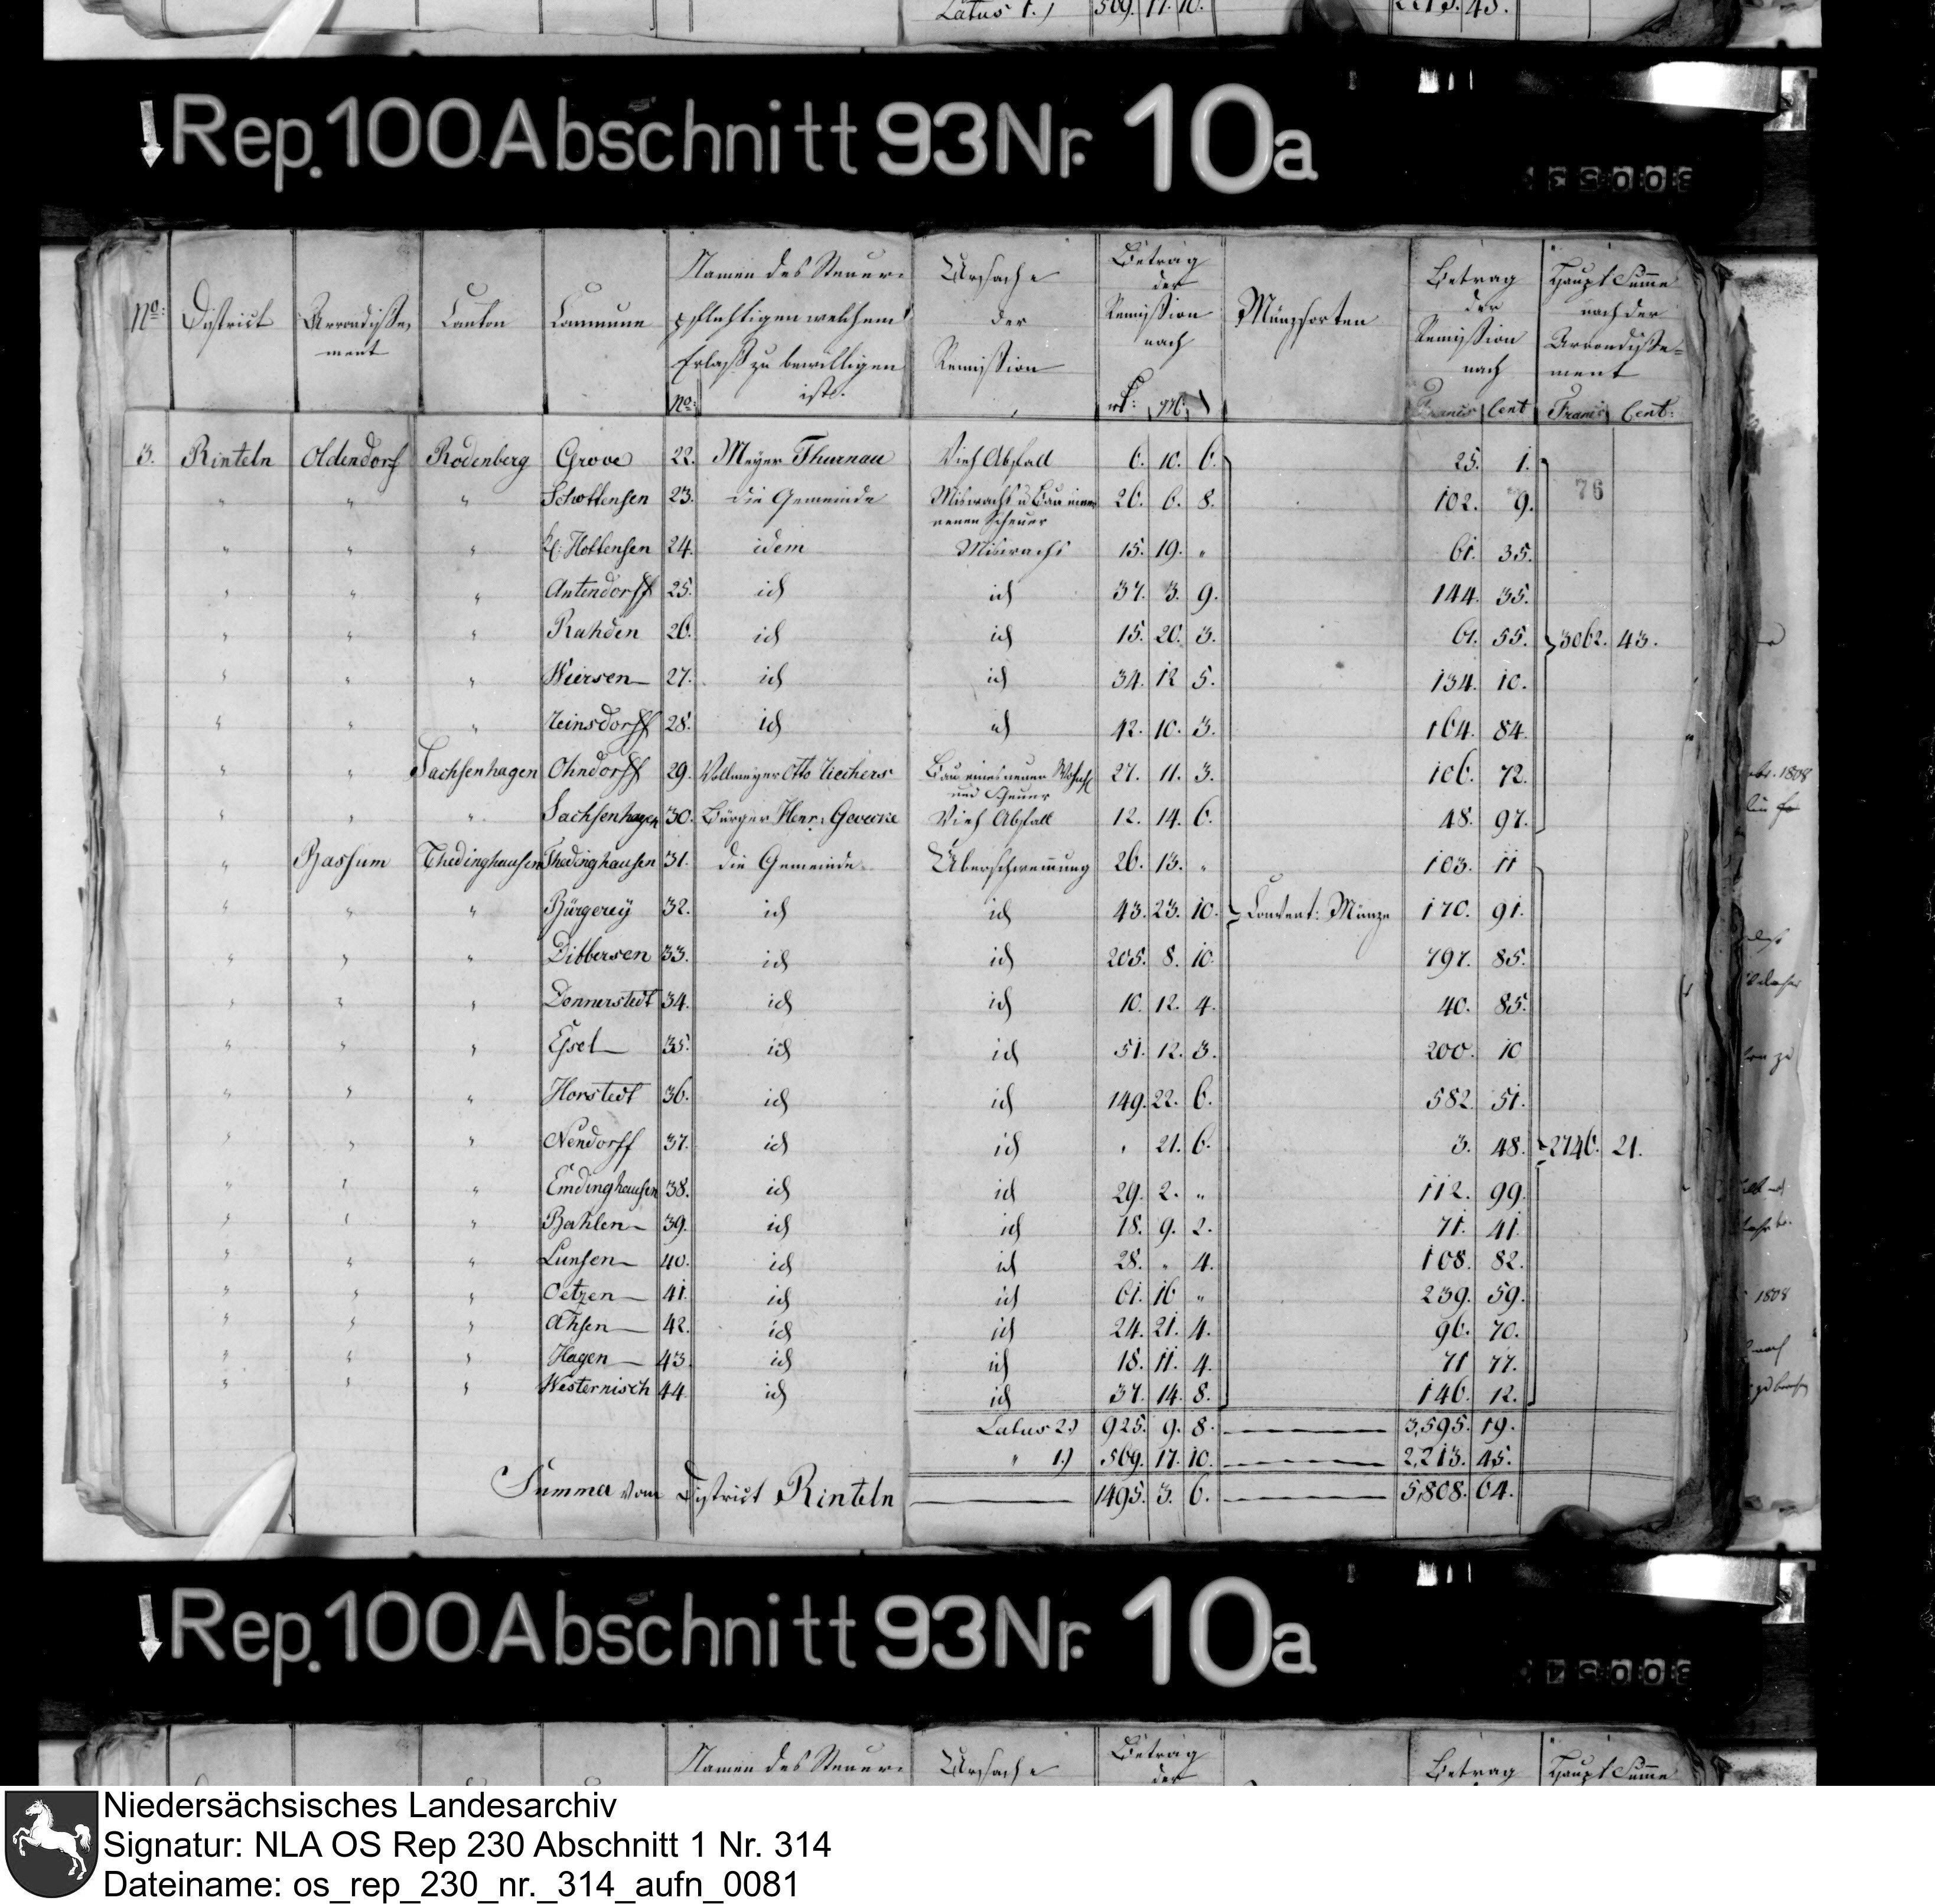 Latus 1.) 569. 17. 10. 2213. 45.
Rep. 100 Abschnitt 93 Nr. 10a
No: District Arrondisse, ment Canton Commune Namen des Steuer, pflichtigen welchem Erlaß zu bewilligen ist. No: Ursache der Remission Betrag der Remission nach Münzsorten Betrag der Remission nach Francs Cent Haupt Summe nach der Arrondisse= ment Francs Cent:
76
3. Rinteln Oldendorf Rodenberg Grove 22. Meyer Thurnau Vieh Abfall 6. 10. 6. 25. 1.
" " " Schottensen 23. die Gemeinde Miswachs u Bau einer neuen Scheuer 26. 6. 8. 102. 9.
" " " Kl: Hottensen 24. idem Miswachs 15. 19. " 61. 35.
" " " Antendorff 25. id id 37. 3. 9. 144. 35.
" " " Rahden 26. id id 15. 20. 3. 61. 55. 3062. 43.
" " " Wiersen 27. id id 34. 12 5. 134. 10.
" " " Reinsdorff 28. id id 42. 10. 3. 164. 84.
" " Sachsenhagen Ohndorff 29. Vollmeyer Otto Tiechers Bau eines neuen Wohnh und Scheuer 27. 11. 3. 106. 72.
" " " Sachsenhagen 30. Bürger Henr: Gevecke Vieh Abfall 12. 14. 6. 48. 97.
" Bassum Thedinghausen Thedinghausen 31. die Gemeinde Überschwemung 26. 13. " 103. 11
" " " Bürgerey 32. id id 43. 23. 10. Convent: Münze 170. 91.
" " " Dibbersen 33. id id 205. 8. 10. 797. 85.
" " " Donnerstedt 34. id id 10. 12. 4. 40. 85.
" " " Eissel 35. id id 51. 12. 3. 200. 10
" " " Horstedt 36. id id 149. 22. 6. 582. 51.
" " " Nendorff 37. id id " 21. 6. 3. 48. 2746. 21.
" " " Emdinghausen 38. id id 29. 2. " 112. 99.
" " " Bahlen 39. id id 18. 9. 2. 71. 41.
" " " Lunsen 40. id id 28. " 4. 108. 82.
" " " Oetzen 41. id id 61. 16 " 239. 59.
" " " Ahsen 42. id id 24. 21. 4. 96. 70.
" " " Hagen 43. id id 18. 11. 4. 71 77.
" " " Westernisch 44 id id 37. 14. 8. 146. 12.
Latus 2.) 925. 9. 8. 3,595. 19.
" 1.) 569. 17. 10. 2,213. 45.
Summa vom District Rinteln 1495. 3. 6. 5,808. 64.
Rep. 100 Abschnitt 93 Nr. 10a
Namen des Steuer, Ursache Betrag der Betrag Haupt Summe
Niedersächsisches Landesarchiv
Signatur: NLA OS Rep 230 Abschnitt 1 Nr. 314
Dateiname: os_rep_230_nr._314_aufn_0081